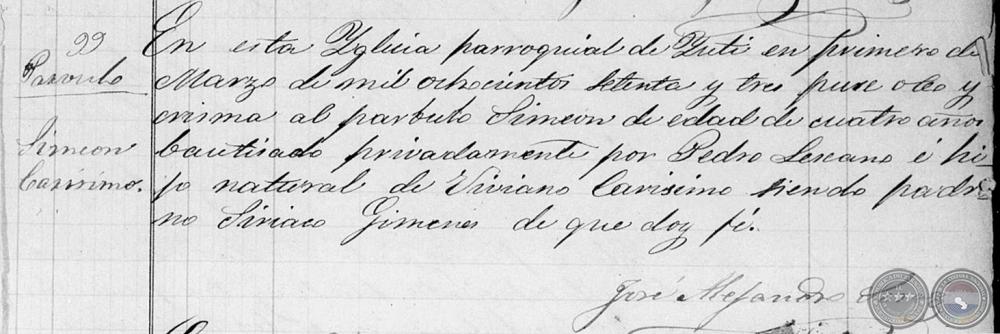 99
Parvulo
Simeon
Carisimo.
En esta Yglecia parroquial de Yuti en primero de
Marzo de mil ochocientos setenta y tres puse oleo y
crisma al parbulo Simeon de edad de cuatro años
bautisado privadamente por Pedro Lescano é hi-
jo natural de Viviano Carisimo siendo padri-
no Siriaco Gimenes de que doy fé.
José Alejandro